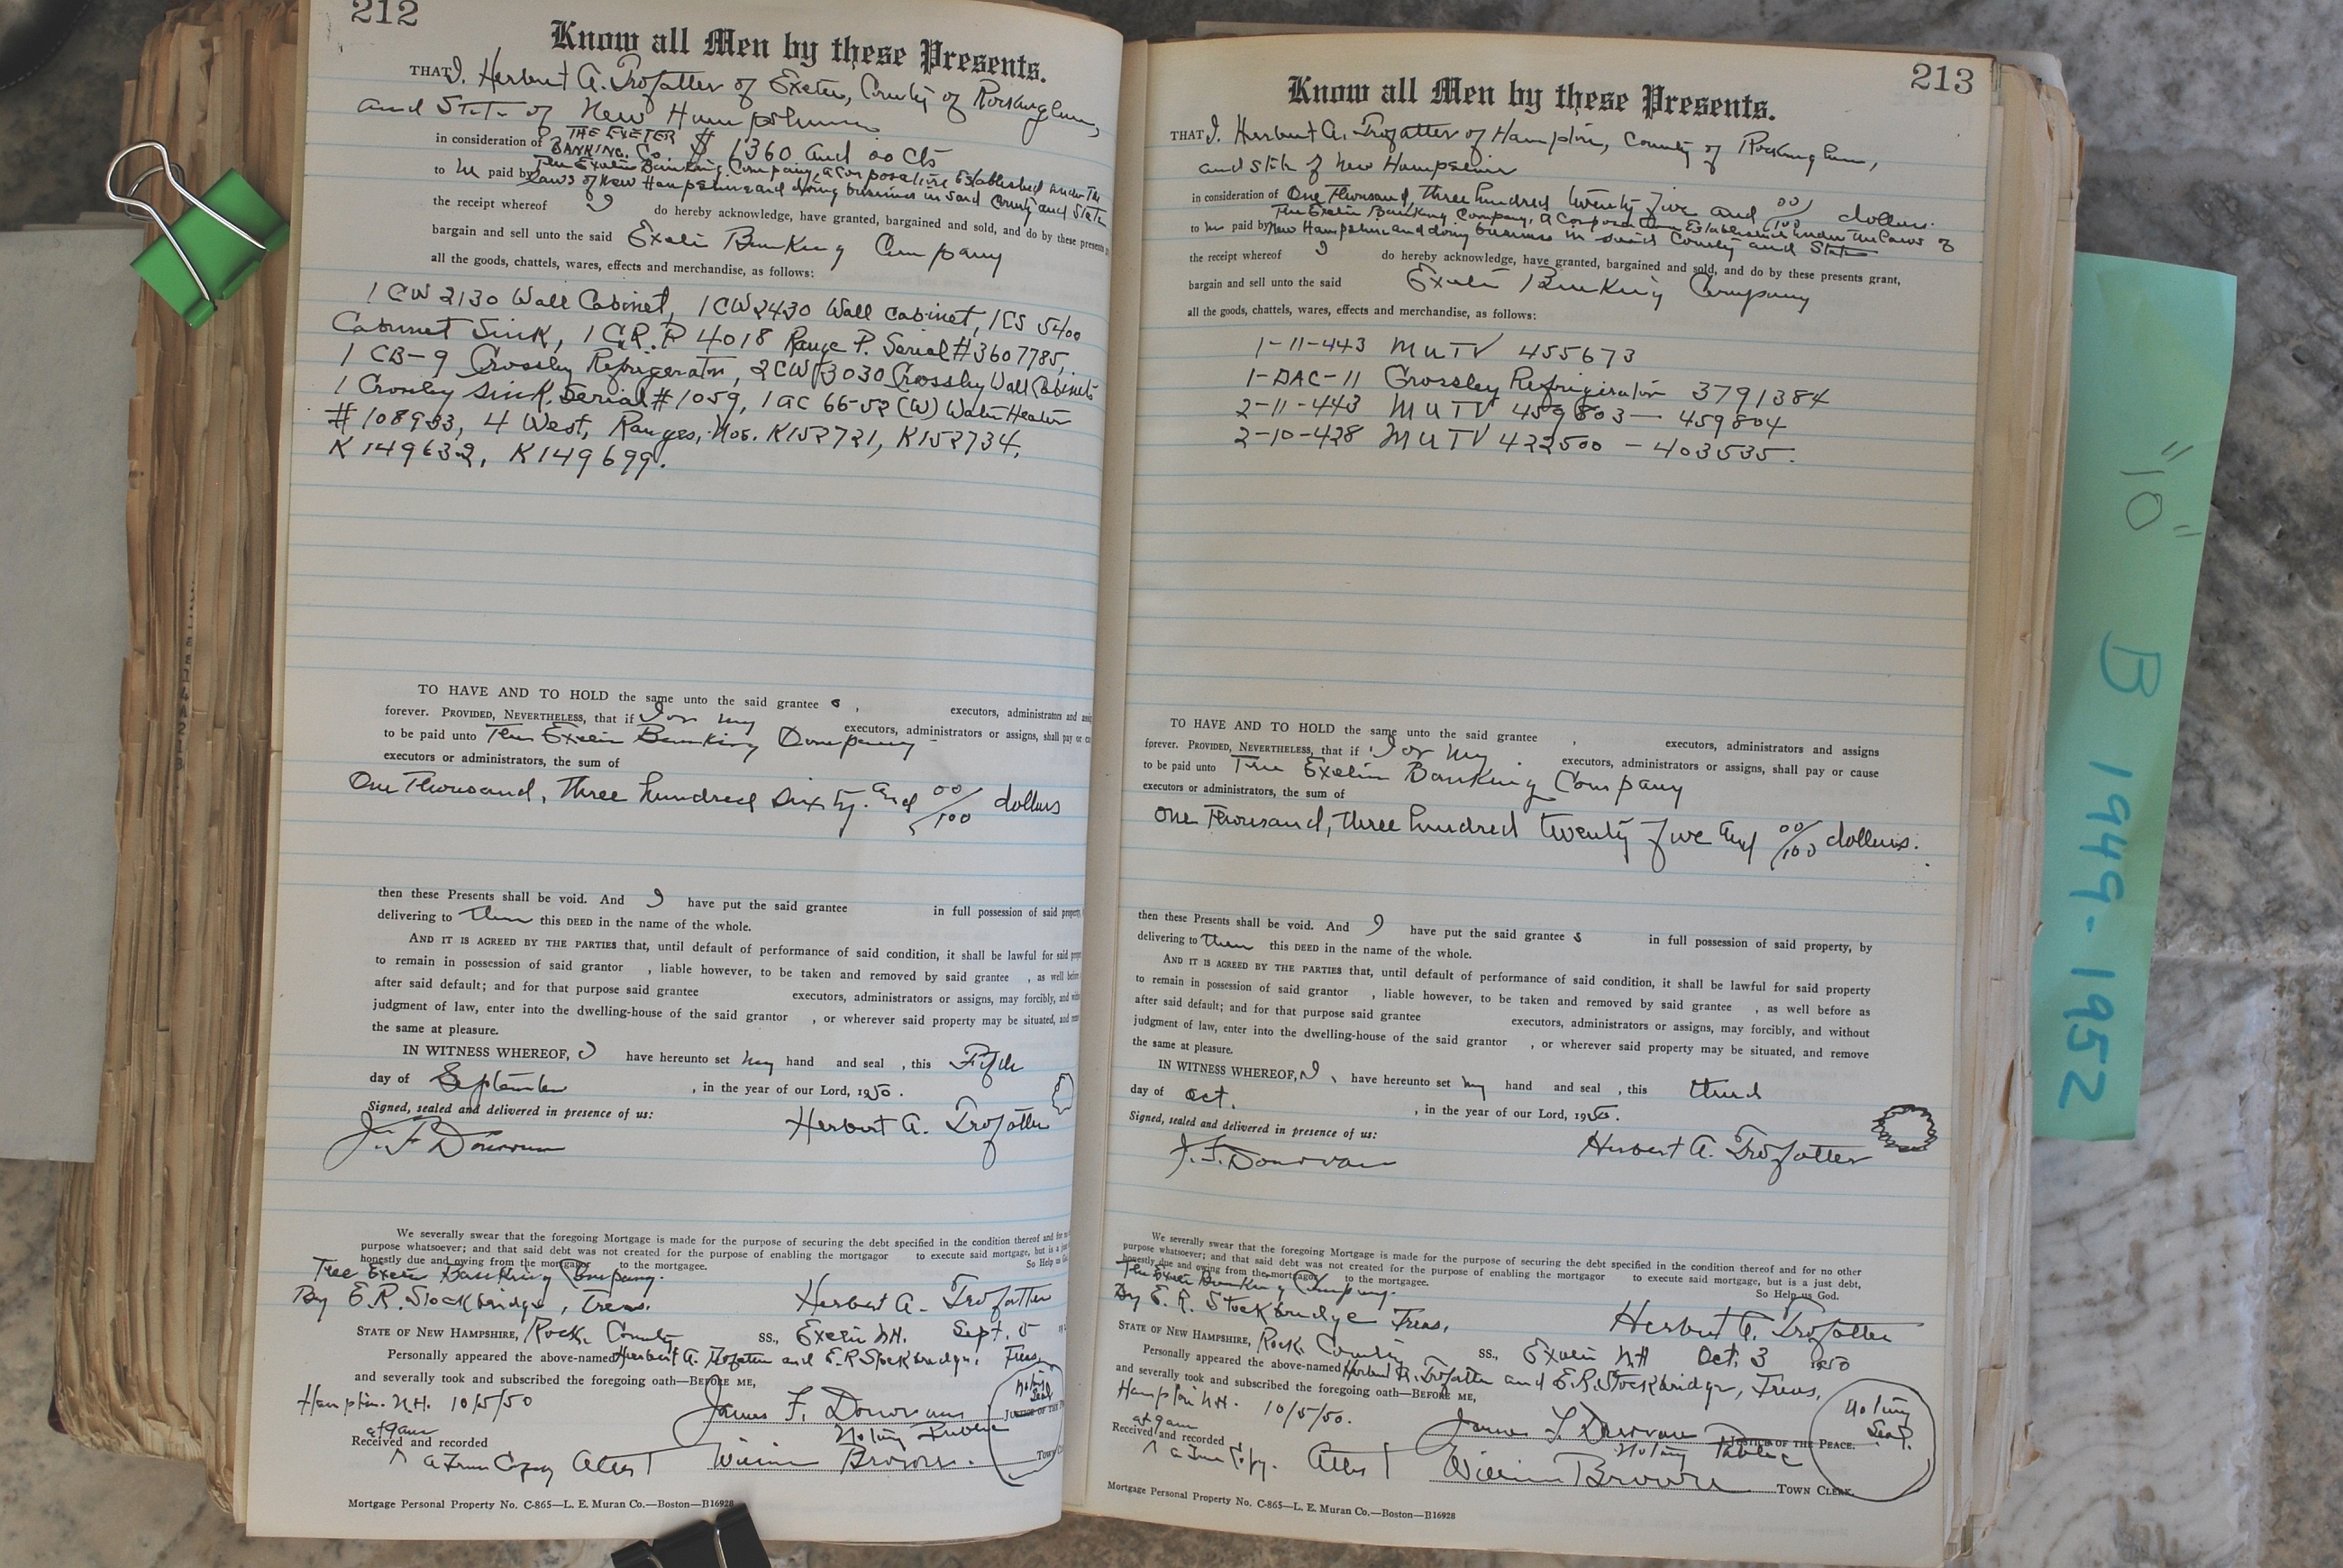 212
Know all Men by these Presents.
THAT I, Herbert A. Trofatter of Exeter, County of Rockingham,
and State of New Hampshire
in consideration of THE EXETER BANKING Co. $ 1360 and 00 cts
to me paid by The Exeter Banking Company, a corporation Established under the
laws of New Hampshire and doing business in said County and State
the receipt whereof I do hereby acknowledge, have granted, bargained and sold, and do by these presents
bargain and sell unto the said Exeter Banking Company
all the goods, chattels, wares, effects and merchandise, as follows:
1 CW 2130 Wall Cabinet, 1 CW 2430 Wall cabinet, 1 CS 5400
Cabinet Sink, 1 C.R.P 4018 Range P. Serial # 3607785,
1 CB-9 Crossley Refrigerator, 2 CW 3030 Crossley Wall Cabinets
1 Crosley Sink, Serial # 1059, 1 GC 66-52 (W) Water Heater
# 108933, 4 West, Ranges, Nos. K152721, K152734,
K149632, K149699.
TO HAVE AND TO HOLD the same unto the said grantee s, executors, administrators and
forever. PROVIDED, NEVERTHELESS, that if I or my executors, administrators or assigns, shall pay or
to be paid unto The Exeter Banking Company
executors or administrators, the sum of
One Thousand, three hundred sixty and 00/100 dollars
then these Presents shall be void. And I have put the said grantee in full possession of said property,
delivering to them this DEED in the name of the whole.
AND IT IS AGREED BY THE PARTIES that, until default of performance of said condition, it shall be lawful for said
to remain in possession of said grantor , liable however, to be taken and removed by said grantee , as well
after said default; and for that purpose said grantee executors, administrators or assigns, may forcibly, and
judgment of law, enter into the dwelling-house of the said grantor , or wherever said property may be situated, and
the same at pleasure.
IN WITNESS WHEREOF, I have hereunto set my hand and seal , this Fifth
day of September , in the year of our Lord, 1950.
Signed, sealed and delivered in presence of us:
J. F. Donovan Herbert A. Trofatter
We severally swear that the foregoing Mortgage is made for the purpose of securing the debt specified in the condition thereof and for
purpose whatsoever; and that said debt was not created for the purpose of enabling the mortgagor to execute said mortgage, but is a
honestly due and owing from the mortgagor to the mortgagee. So Help
The Exeter Banking Company.
By E. R. Stockbridge, Treas. Herbert A. Trofatter
STATE OF NEW HAMPSHIRE, Rock. County SS., Exeter N.H. Sept. 5
Personally appeared the above-named Herbert A. Trofatter and E.R. Stockbridge, Treas,
and severally took and subscribed the foregoing oath—BEFORE ME,
Hampton. N.H. 10/5/50 James F. Donovan JUSTICE OF THE
Notary Public
Notary Seal
at 9 am
Received and recorded
A True Copy Attest William Brown. TOWN
Mortgage Personal Property No. C-865—L. E. Muran Co.—Boston—B16928
213
Know all Men by these Presents.
THAT I, Herbert A. Trofatter of Hampton, County of Rockingham,
and State of New Hampshire
in consideration of One Thousand, three hundred twenty five and 00/100 dollars.
to me paid by The Exeter Banking Company, a Corporation Established under the laws of
New Hampshire and doing business in said County and State
the receipt whereof I do hereby acknowledge, have granted, bargained and sold, and do by these presents grant,
bargain and sell unto the said Exeter Banking Company
all the goods, chattels, wares, effects and merchandise, as follows:
1-11-443 MUTV 455673
1-DAC-11 Crossley Refrigerator 3791384
2-11-443 MUTV 459803 — 459804
2-10-428 MUTV 422500 - 403535.
TO HAVE AND TO HOLD the same unto the said grantee , executors, administrators and assigns
forever. PROVIDED, NEVERTHELESS, that if I or my executors, administrators or assigns, shall pay or cause
to be paid unto The Exeter Banking Company
executors or administrators, the sum of
One Thousand, three hundred twenty five and 00/100 dollars.
then these Presents shall be void. And I have put the said grantee s in full possession of said property, by
delivering to them this DEED in the name of the whole.
AND IT IS AGREED BY THE PARTIES that, until default of performance of said condition, it shall be lawful for said property
to remain in possession of said grantor , liable however, to be taken and removed by said grantee , as well before as
after said default; and for that purpose said grantee executors, administrators or assigns, may forcibly, and without
judgment of law, enter into the dwelling-house of the said grantor , or wherever said property may be situated, and remove
the same at pleasure.
IN WITNESS WHEREOF, I, have hereunto set my hand and seal , this third
day of Oct. , in the year of our Lord, 1950.
Signed, sealed and delivered in presence of us:
J. F. Donovan Herbert A. Trofatter
We severally swear that the foregoing Mortgage is made for the purpose of securing the debt specified in the condition thereof and for no other
purpose whatsoever; and that said debt was not created for the purpose of enabling the mortgagor to execute said mortgage, but is a just debt,
honestly due and owing from the mortgagor to the mortgagee. So Help us God.
The Exeter Banking Company.
By E. R. Stockbridge Treas. Herbert A. Trofatter
STATE OF NEW HAMPSHIRE, Rock. County SS., Exeter N.H Oct. 3 1950
Personally appeared the above-named Herbert A. Trofatter and E.R. Stockbridge, Treas,
and severally took and subscribed the foregoing oath—BEFORE ME,
Hampton N.H. 10/5/50. James F. Donovan JUSTICE OF THE PEACE.
Notary Public
Notary Seal.
at 9 am
Received and recorded
A True Copy. Attest William Brown TOWN CLERK.
Mortgage Personal Property No. C-865—L. E. Muran Co.—Boston—B16928
"10" B 1949-1952